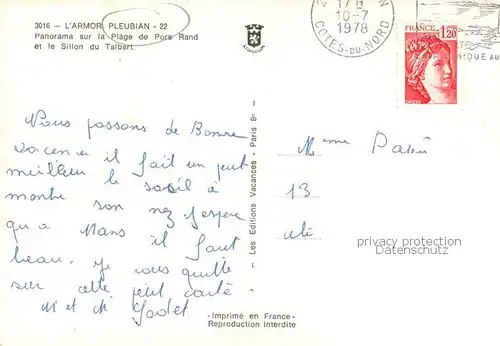 3016 — L'ARMOR PLEUBIAN - 22
Panorama sur la Plage de Pors Rand
et le Sillon du Talbert.
17 H
10-7
1978
COTES-DU-NORD
FRANCE
1,20
IQUE AU
Nous passons de Bonne
vacence il fait un petit
meilleur le soleil à
montre son nez J'espère
qu a Mans il faut
beau. Je vous quitte
sur cette petit carte.
M et M Godet
- Les Editions Vacances - Paris 8e -
Mme
13
privacy protection
Datenschutz
-Imprimé en France-
Reproduction interdite